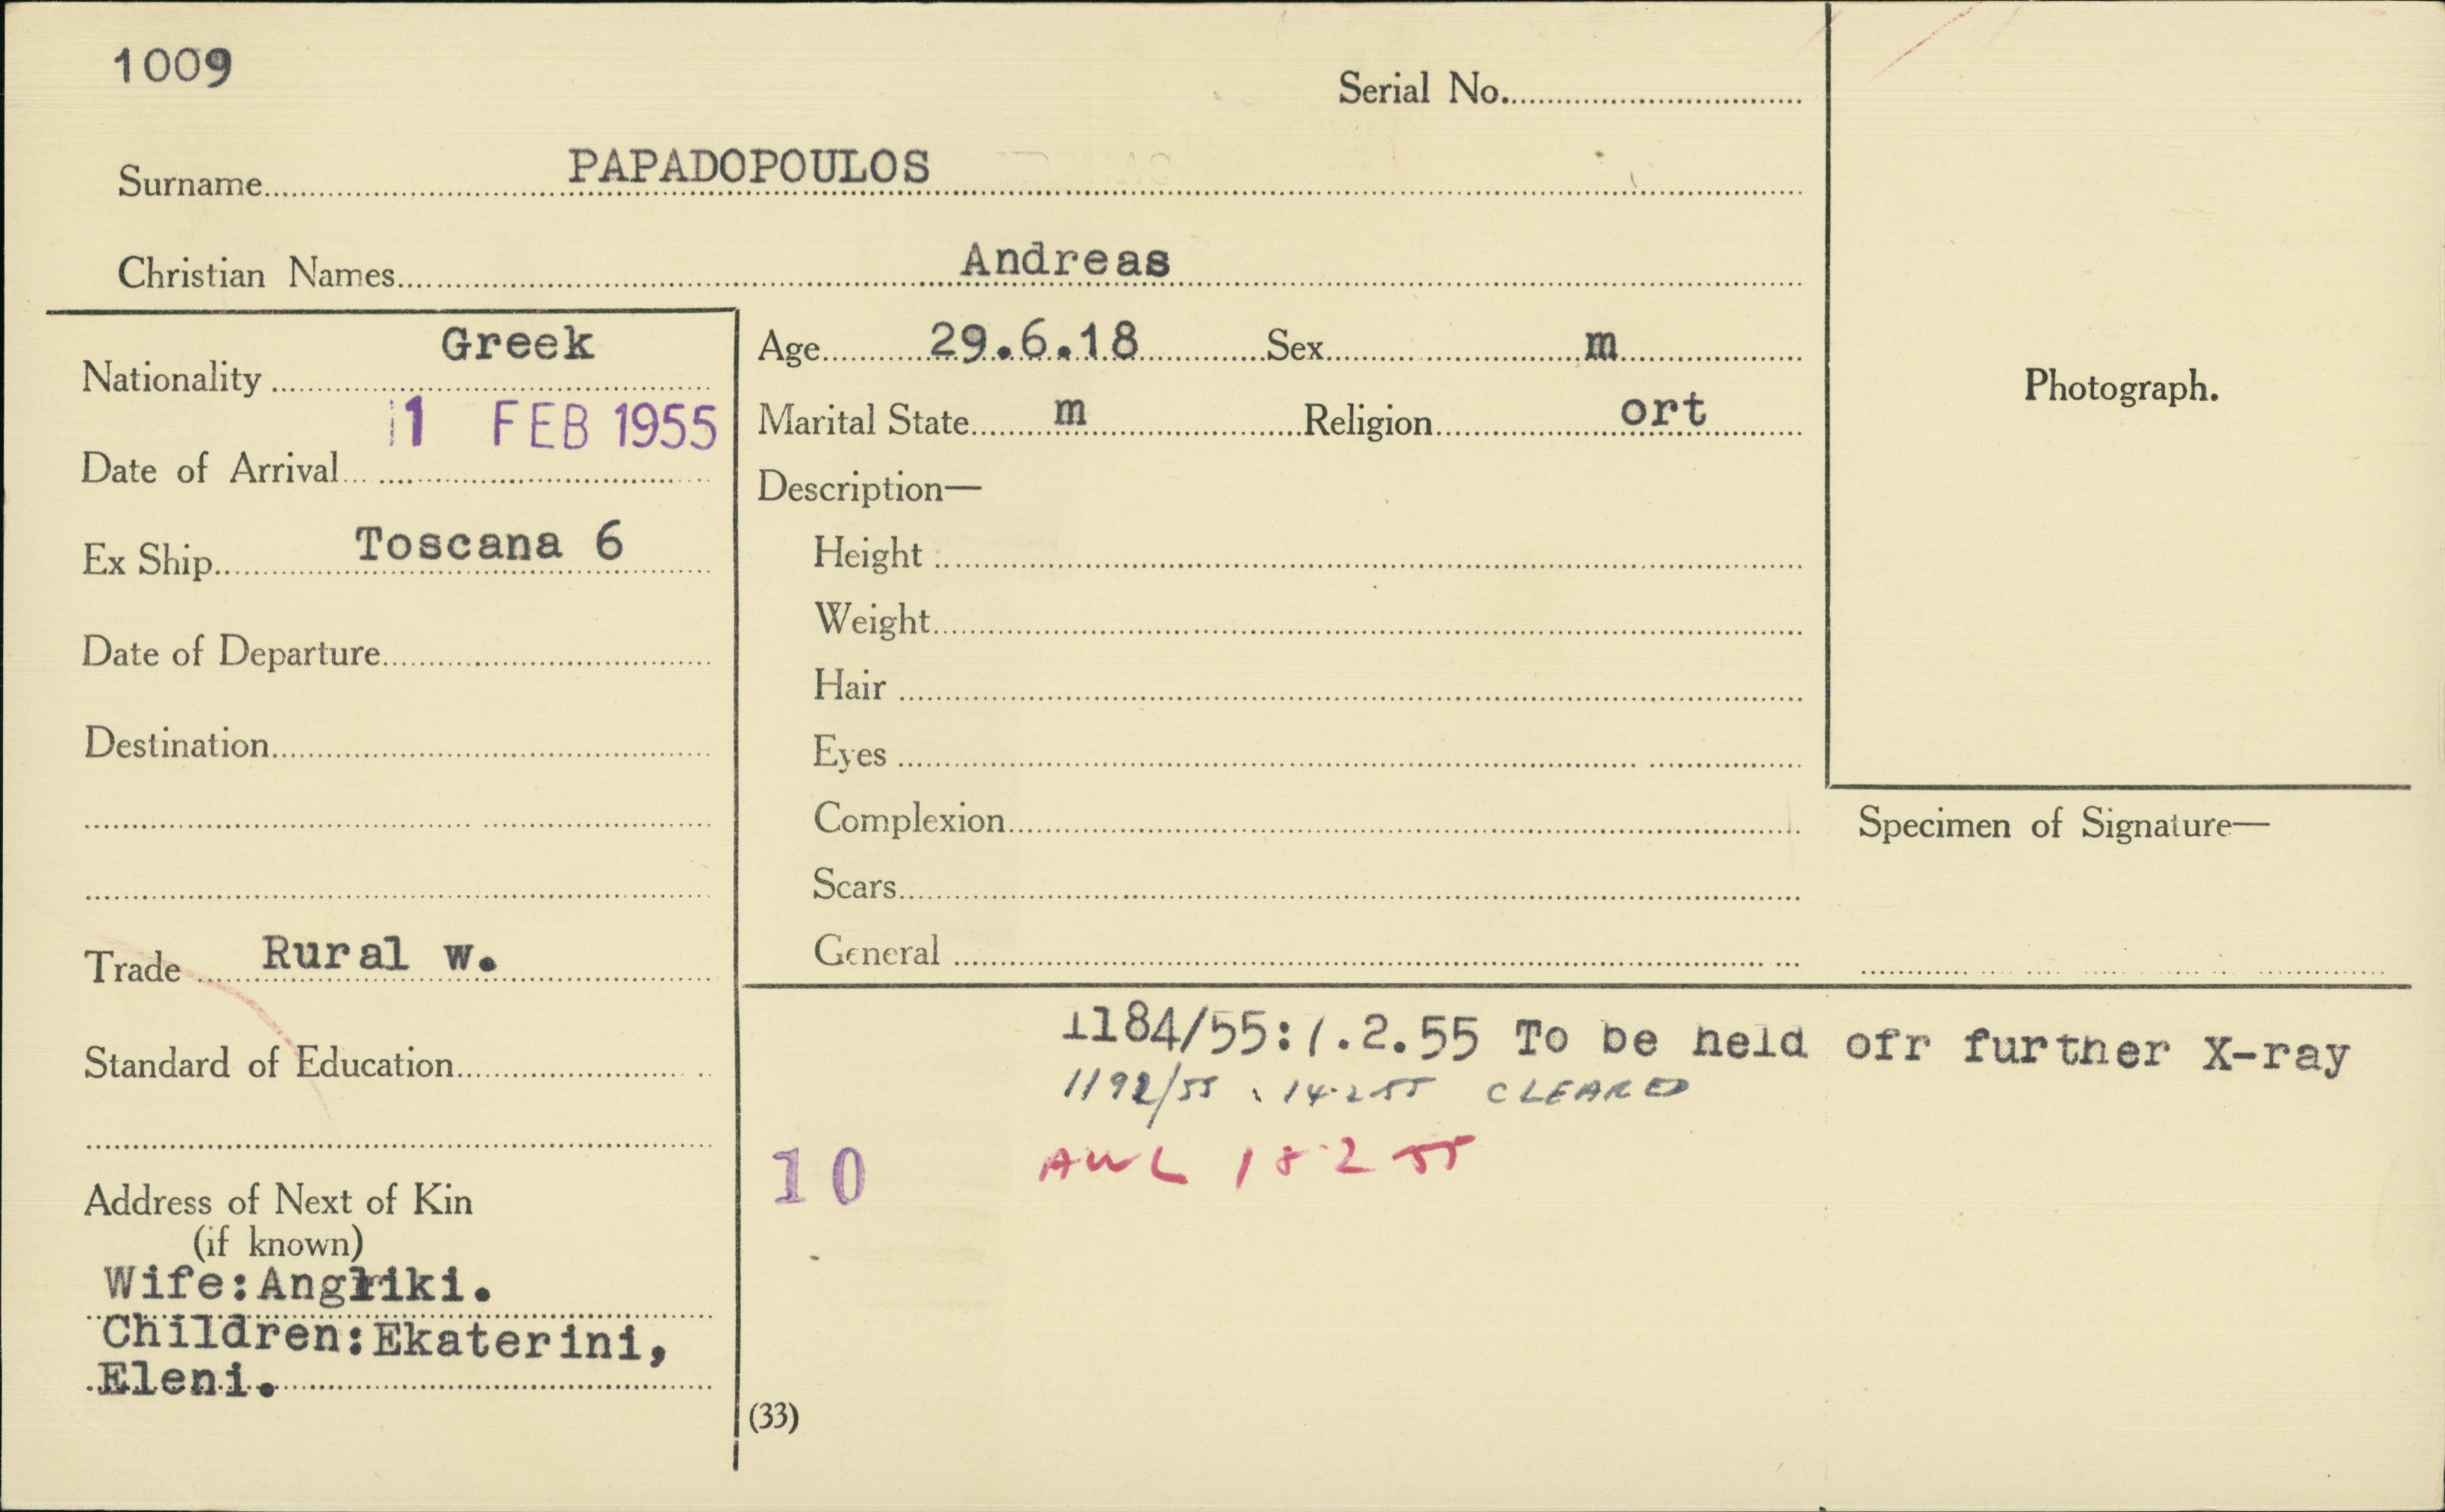 1009
Serial No.
Surname PAPADOPOULOS
Christian Names Andreas
Nationality Greek
Date of Arrival 1 FEB 1955
Ex Ship Toscana 6
Date of Departure
Destination
Trade Rural w.
Standard of Education
Address of Next of Kin
(if known)
Wife:Angliki.
Children:Ekaterini,
Eleni.
Age 29.6.18 Sex m
Marital State m Religion ort
Description—
Height
Weight
Hair
Eyes
Complexion
Scars
General
Photograph.
Specimen of Signature—
1184/55:1.2.55 To be held ofr further X-ray
1192/55 : 14.2.55 CLEARED
AWL 18 2 55
10
(33)